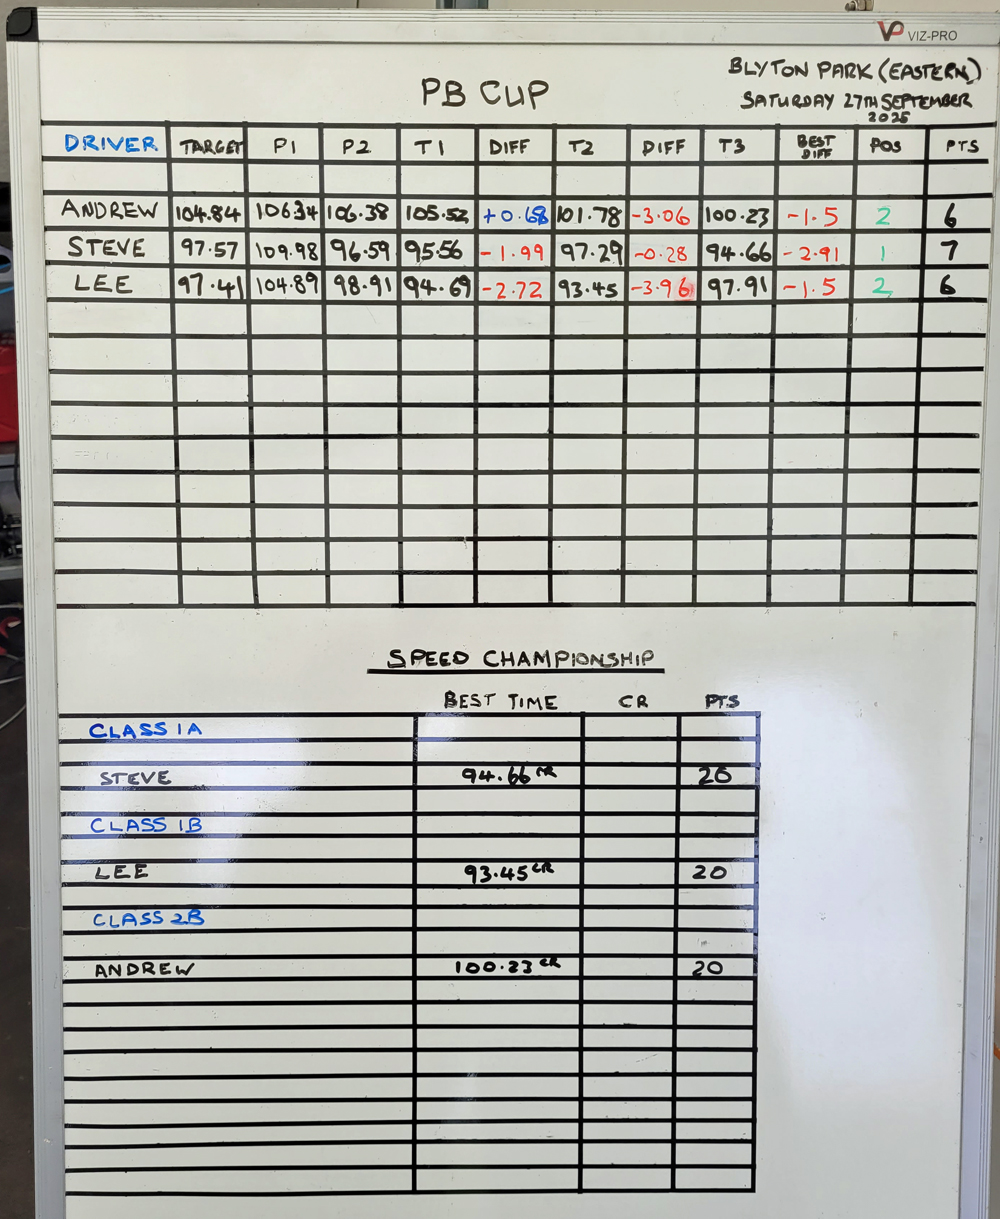 VP VIZ-PRO
BLYTON PARK (EASTERN)
PB CUP
SATURDAY 27TH SEPTEMBER
2025
DRIVER TARGET P1 P2 T1 DIFF T2 DIFF T3 BEST DIFF POS PTS
ANDREW 104.84 106.34 106.38 105.52 +0.68 101.78 -3.06 100.23 -1.5 2 6
STEVE 97.57 109.98 96.59 95.56 -1.99 97.29 -0.28 94.66 -2.91 1 7
LEE 97.41 104.89 98.91 94.69 -2.72 93.45 -3.96 97.91 -1.5 2 6
SPEED CHAMPIONSHIP
BEST TIME CR PTS
CLASS 1A
STEVE 94.66 CR 20
CLASS 1B
LEE 93.45 CR 20
CLASS 2B
ANDREW 100.23 CR 20